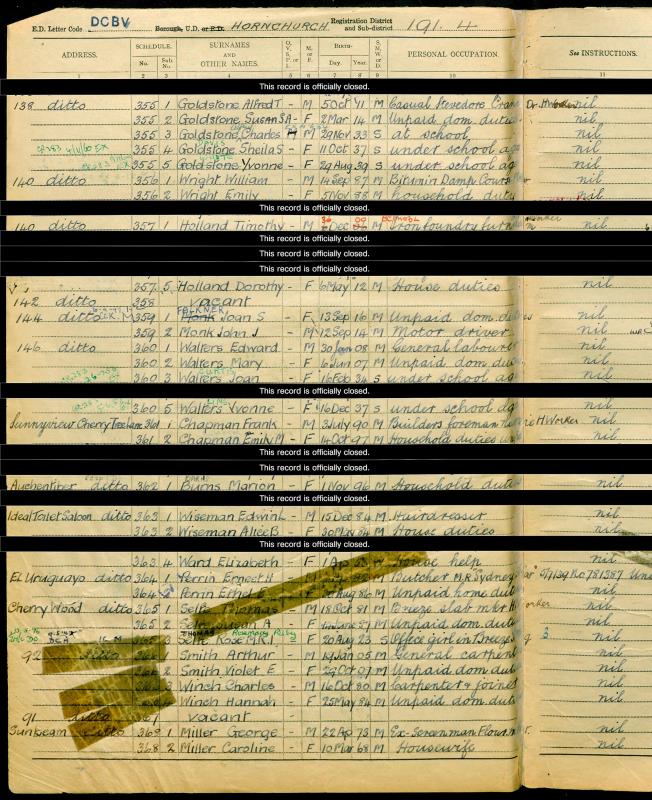 E.D. Letter Code DCBV Borough, U.D. or R.D. HORNCHURCH Registration District and Sub-district 191.4
ADDRESS. SCHEDULE. SURNAMES AND OTHER NAMES. O., V., S., P. or I. M. or F. BIRTH— S. M. W. or D. PERSONAL OCCUPATION. See INSTRUCTIONS.
No. Sub. No. Day. Year.
1 2 3 4 5 6 7 8 9 10 11
This record is officially closed.
138 ditto 355 1 Goldstone Alfred T - M 5 Oct 11 M Casual Stevedore nil
355 2 Goldstone Susan S A - F 2 Mar 14 M Unpaid dom. duties nil
355 3 Goldstone Charles M 29 Nov 33 S at school nil
355 4 Goldstone Sheila S - F 11 Oct 37 S under school ag nil
355 5 Goldstone Yvonne - F 29 Aug 39 S under school ag nil
140 ditto 356 1 Wright William - M 4 Sep 87 M Bitumin Damp Course nil
356 2 Wright Emily - F 5 Nov 88 M household dut nil
This record is officially closed.
140 ditto 357 1 Holland Timothy - M Dec M Iron foundry nil
This record is officially closed.
This record is officially closed.
357 5 Holland Dorothy - F 6 May 12 M House duties nil
142 ditto 358 vacant
FALKNER
144 ditto 359 1 Monk Joan S - F 13 Sep 16 M Unpaid dom. duties nil
359 2 Monk John J - M 12 Sep 14 M Motor driver nil
146 ditto 360 1 Walters Edward - M 30 Jan 08 M General labourer nil
360 2 Walters Mary - F 6 Jun 07 M Unpaid dom. du nil
CURTIS
360 3 Walters Joan - F 16 Feb 34 S under school ag nil
This record is officially closed.
360 5 Walters Yvonne - F 16 Dec 37 S under school ag nil
Sunnyview Cherry Tree Lane 361 1 Chapman Frank - M 3 July 90 M Builders foreman H Worker nil
361 2 Chapman Emily M - F 14 Oct 97 M Household duties nil
This record is officially closed.
This record is officially closed.
Auchentiber ditto 362 1 Burns Marion - F 1 Nov 96 M Household duties nil
This record is officially closed.
Ideal Toilet Saloon ditto 363 1 Wiseman Edwin L - M 15 Dec 84 M Hairdresser nil
363 2 Wiseman Alice B - F 30 May 84 M House duties nil
This record is officially closed.
363 4 Ward Elizabeth - F 1 Ap House help nil
El Uruguayo ditto 364 1 Perrin Ernest H - M Butcher
364 Perrin Ethel E - F Aug 86 M Unpaid home dut nil
Cherry Wood ditto 365 1 Selfe Thomas - M 18 Oct 81 M Breeze slab mkr nil
365 2 Selfe Susan A - F June 87 M Unpaid dom. dut nil
THOMAS
365 3 Selfe Rose M K - F 20 Aug 23 S Office girl in Breeze nil
92 ditto Smith Arthur - M 19 Jan 05 M General carpent nil
2 Smith Violet E - F 29 Oct 07 M Unpaid dom. dut nil
Winch Charles - M 16 Oct 80 M Carpenter & joiner nil
Winch Hannah - F 25 May 84 M Unpaid dom. dut nil
91 ditto 367 vacant
Sunbeam ditto 368 1 Miller George - M 22 Ap 73 M Ex-Screenman nil
368 2 Miller Caroline - F 10 Mar 68 M Housewife nil